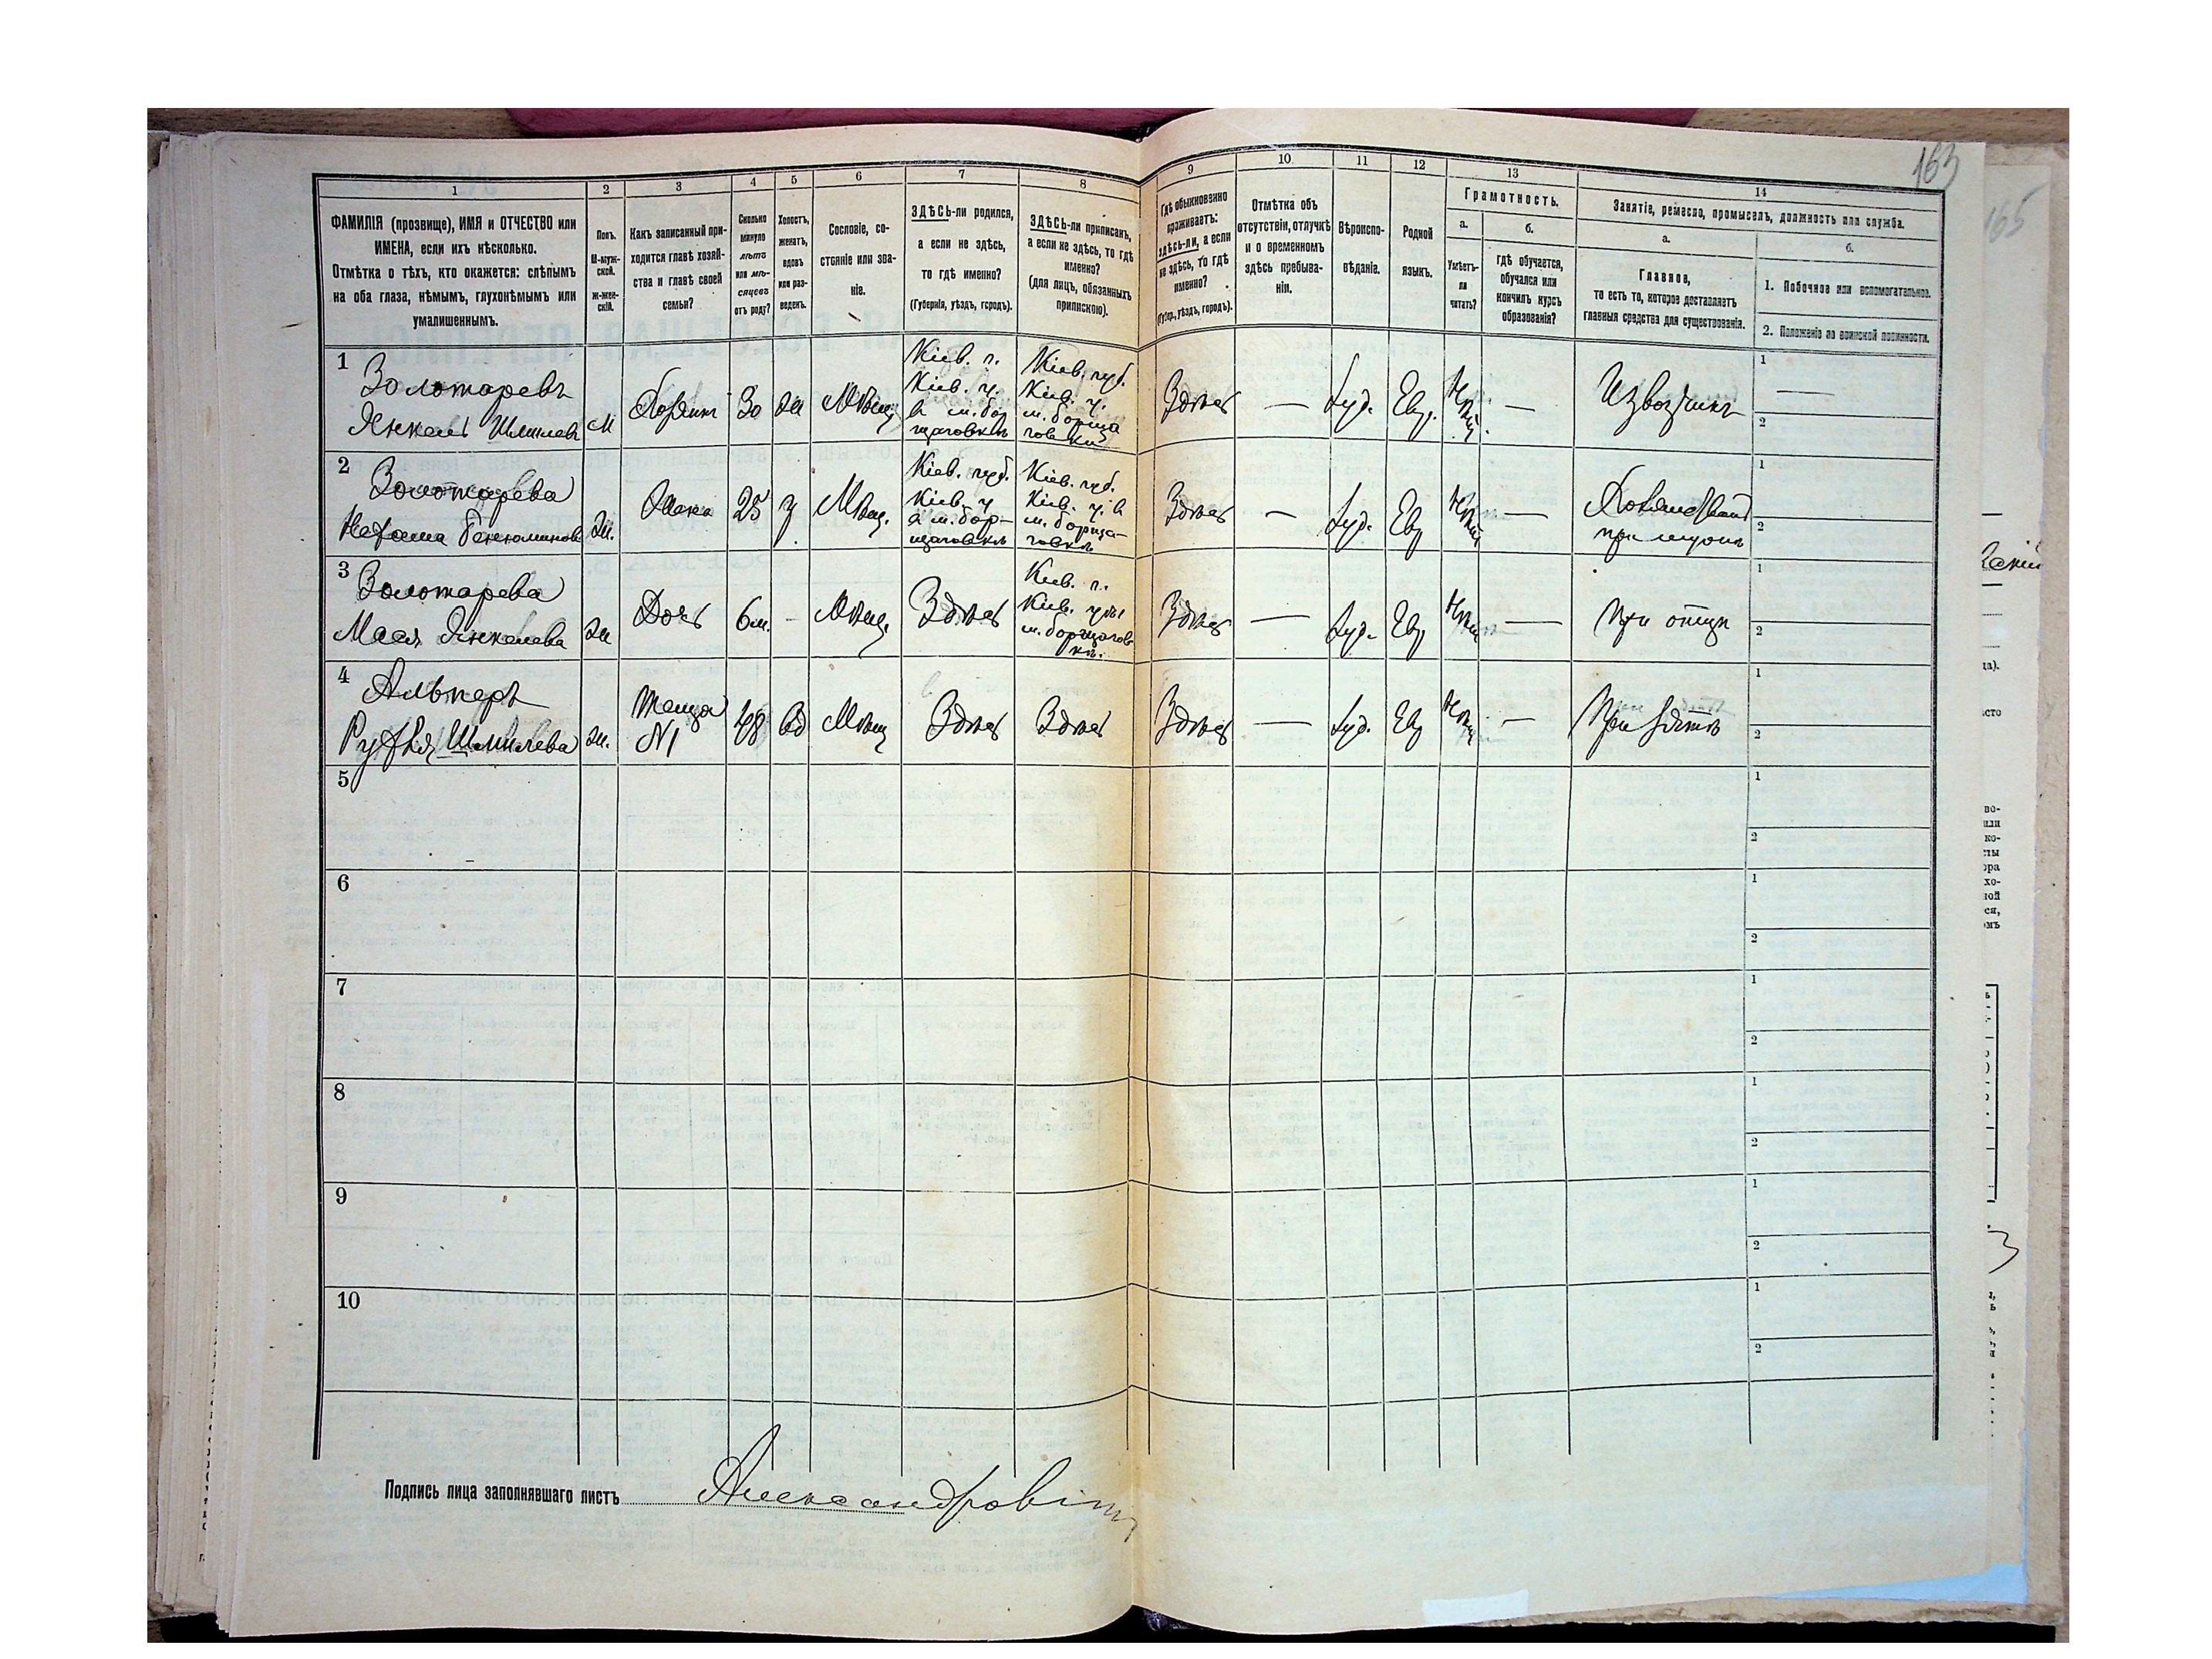 163
1 2 3 4 5 6 7 8 9 10 11 12 13 14
ФАМИЛІЯ (прозвище), ИМЯ и ОТЧЕСТВО или
ИМЕНА, если ихъ нѣсколько.
Отмѣтка о тѣхъ, кто окажется: слѣпымъ
на оба глаза, нѣмымъ, глухонѣмымъ или
умалишеннымъ.
Полъ.
М-муж-
ской.
Ж-жен-
скій.
Какъ записанный при-
ходится главѣ хозяй-
ства и главѣ своей
семьи?
Сколько
минуло
лѣтъ
или мѣ-
сяцевъ
отъ роду?
Холостъ,
женатъ,
вдовъ
или раз-
веденъ.
Сословіе, со-
стояніе или зва-
ніе.
ЗДѢСЬ-ли родился,
а если не здѣсь,
то гдѣ именно?
(Губернія, уѣздъ, городъ).
ЗДѢСЬ-ли приписанъ,
а если не здѣсь, то гдѣ
именно?
(для лицъ, обязанныхъ
припискою).
Гдѣ обыкновенно
проживаетъ:
здѣсь-ли, а если
не здѣсь, то гдѣ
именно?
(Губер., уѣздъ, городъ).
Отмѣтка объ
отсутствіи, отлучкѣ
и о временномъ
здѣсь пребыва-
ніи.
Вѣроиспо-
вѣданіе.
Родной
языкъ.
Грамотность.
а.
Умѣетъ-
ли
читать?
б.
гдѣ обучается,
обучался или
кончилъ курсъ
образованія?
Занятіе, ремесло, промыселъ, должность или служба.
а.
Главное,
то есть то, которое доставляетъ
главныя средства для существованія.
б.
1. Побочное или вспомогательное.
2. Положеніе по воинской повинности.
1
Золотаревъ
Янкель Шмилев
М
Хозяин
30
ж
Мѣщ
Кіев. г.
Кіев. у.
в м. бор
щаговкѣ
Кіев. губ.
Кіев. у.
м. борща
говки
Здѣсь
—
Іуд.
Евр.
—
Извозчикъ
1
—
2
2
Золотарева
Бенюминов
ж.
Жена
25
з
Мѣщ.
Кіев. губ.
Кіев. у
в м. бор-
щаговкѣ
Кіев. губ.
Кіев. у. в
м. борща-
говкѣ
Здѣсь
—
Іуд.
Евр
—
при мужѣ
1
2
3
Золотарева
Мася Янкелева
ж
Дочь
6 м.
-
Мѣщ.
Здѣсь
Кіев. г.
Кіев. у
м. борщагов
ки.
Здѣсь
—
Іуд.
Евр
—
При отцѣ
1
2
4
Альперъ
Рухля Шмилева
ж.
Теща
№1
48
вд
Мѣщ
Здѣсь
Здѣсь
Здѣсь
—
Іуд.
Евр
—
При зятѣ
1
2
5
1
2
6
1
2
7
1
2
8
1
2
9
1
2
10
1
2
Подпись лица заполнявшаго листъ
165
3